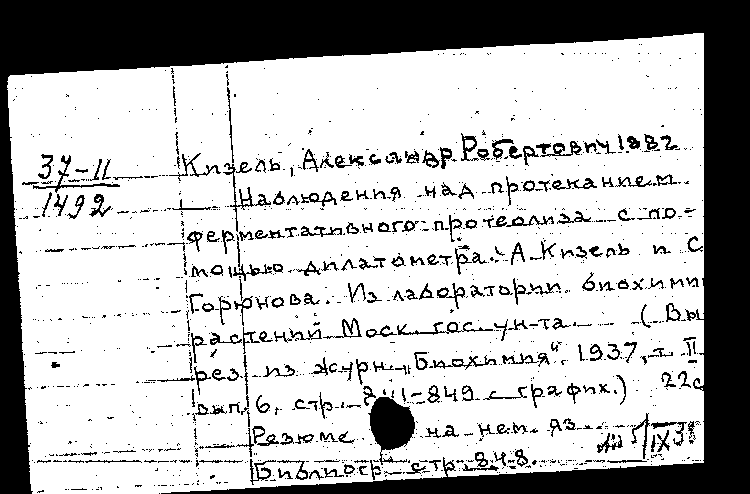 37-II
1492
Кизель, Александр Робертович 1882
Наблюдения над протеканием
ферментативного протеолиза с по-
мощью дилатометра. А. Кизель и С.
Горюнова. Из лаборатории биохимии
растений Моск. гос. ун-та. (Вы
рез. из журн. „Биохимия“ 1937, т. II
вып. 6, стр. -849 с график.) 22с
Резюме на нем. яз.
Библиогр. стр. 848.
5/IX 38